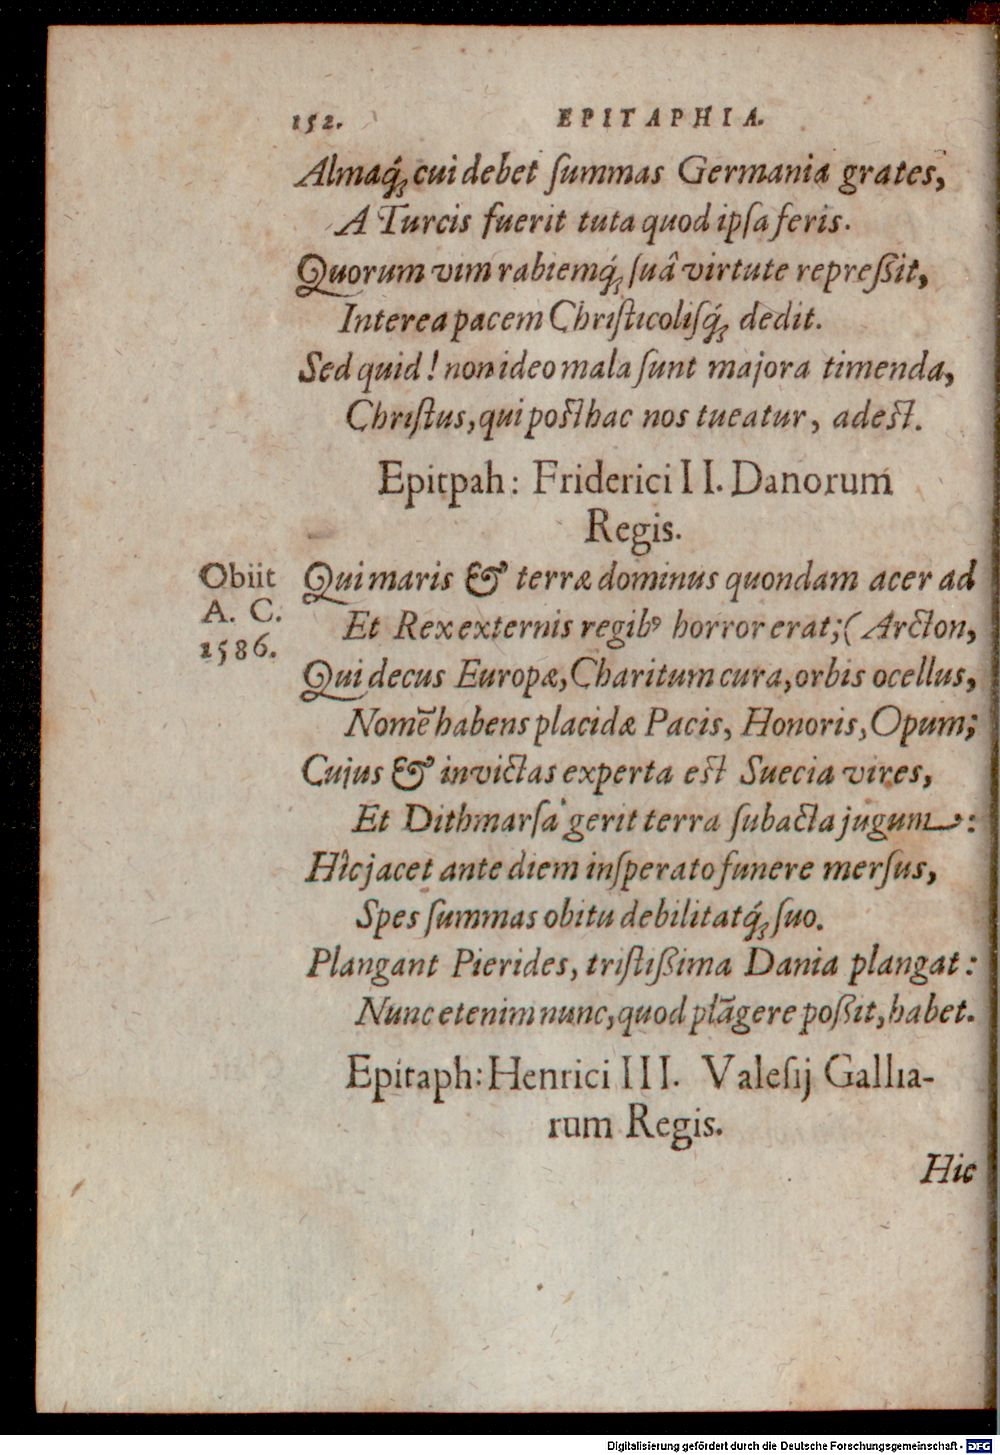 152. EPITAPHIA.
Almaq́; cui debet ſummas Germania grates,
A Turcis fuerit tuta quod ipſa feris.
Quorum vim rabiemq́; ſuâ virtute repreßit,
Interea pacem Chriſticoliſq́; dedit.
Sed quid! non ideo mala ſunt majora timenda,
Chriſtus, qui poſthac nos tueatur, adeſt.
Epitpah: Friderici II. Danorum
Regis.
Obiit
A. C.
1586.
Qui maris & terræ dominus quondam acer ad
Et Rex externis regibꝰ horror erat; (Arcton,
Qui decus Europæ, Charitum cura, orbis ocellus,
Nomẽ habens placidæ Pacis, Honoris, Opum;
Cujus & invictas experta eſt Suecia vires,
Et Dithmarſa gerit terra ſubacta jugum:
Hîc jacet ante diem inſperato funere merſus,
Spes ſummas obitu debilitatq́; ſuo.
Plangant Pierides, triſtißima Dania plangat:
Nunc etenim nunc, quod plãgere poßit, habet.
Epitaph: Henrici III. Valeſij Gallia-
rum Regis.
Hic
Digitalisierung gefördert durch die Deutsche Forschungsgemeinschaft - DFG